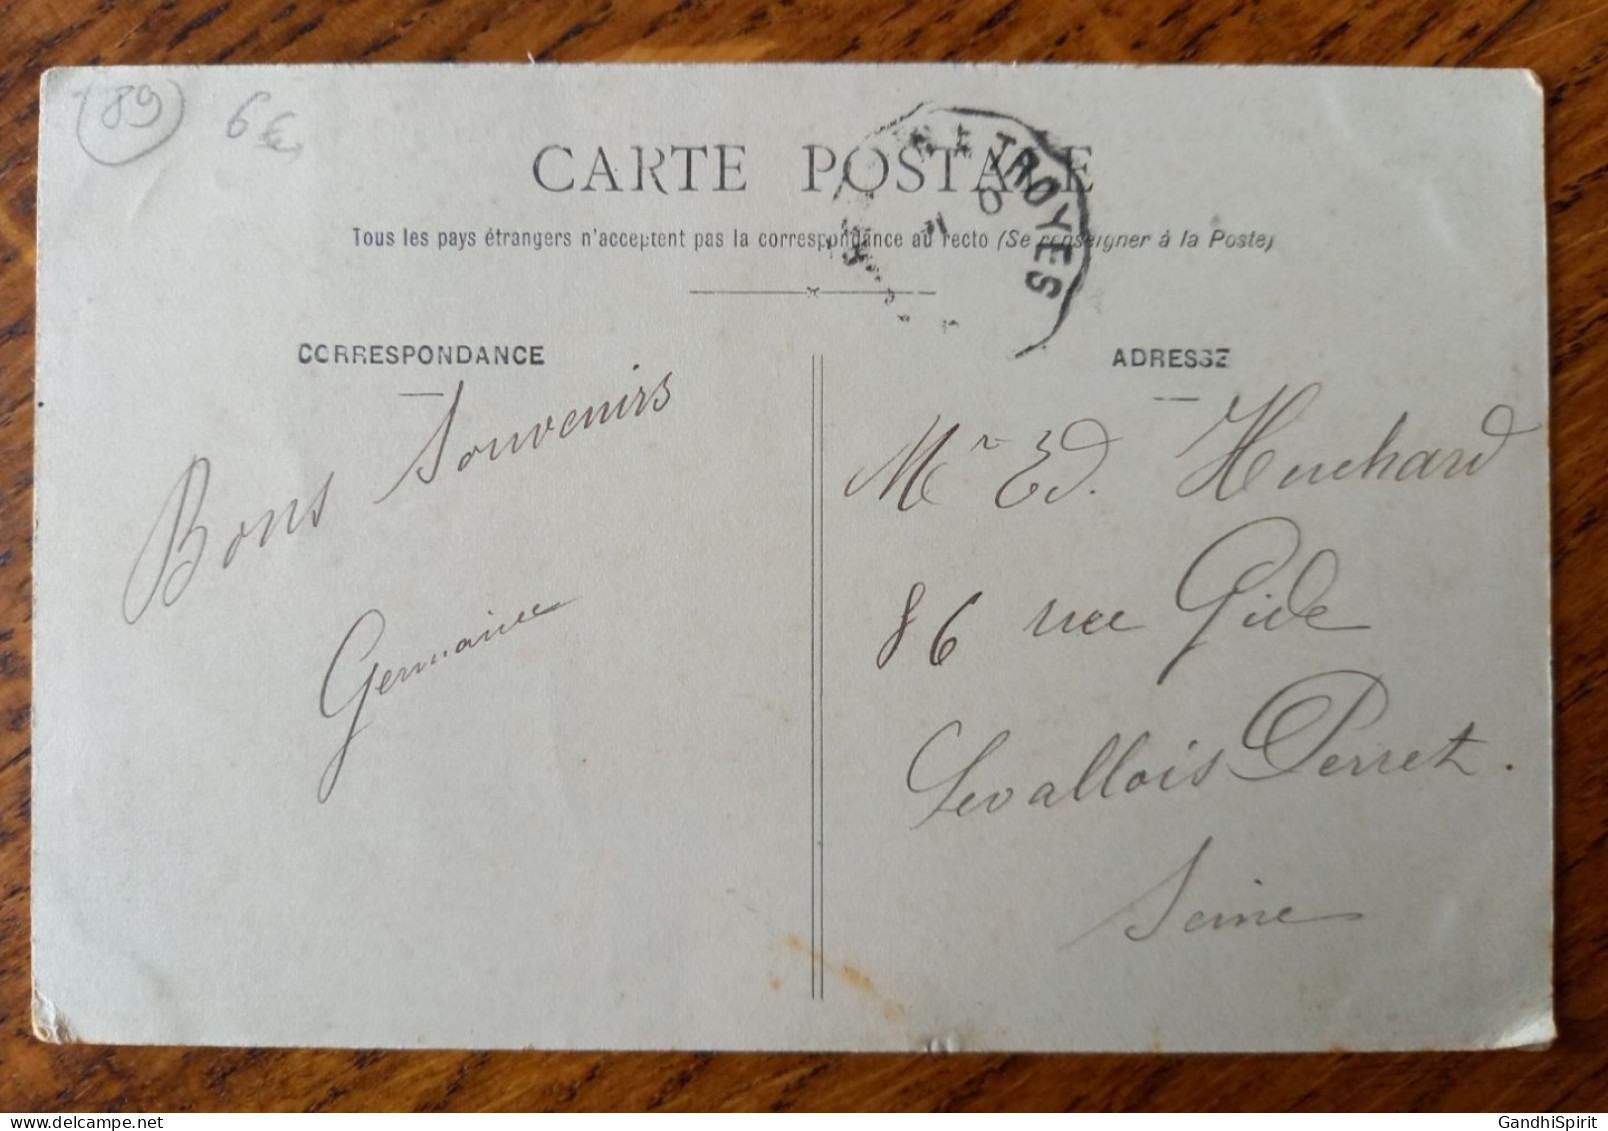 (89) 6€
CARTE POSTALE
TROYES
Tous les pays étrangers n'acceptent pas la correspondance au recto (Se renseigner à la Poste)
CORRESPONDANCE
Bons Souvenirs
Germaine
ADRESSE
Mr Ed. Huchard
86 rue Gide
Levallois Perret.
Seine
GandhiSpirit